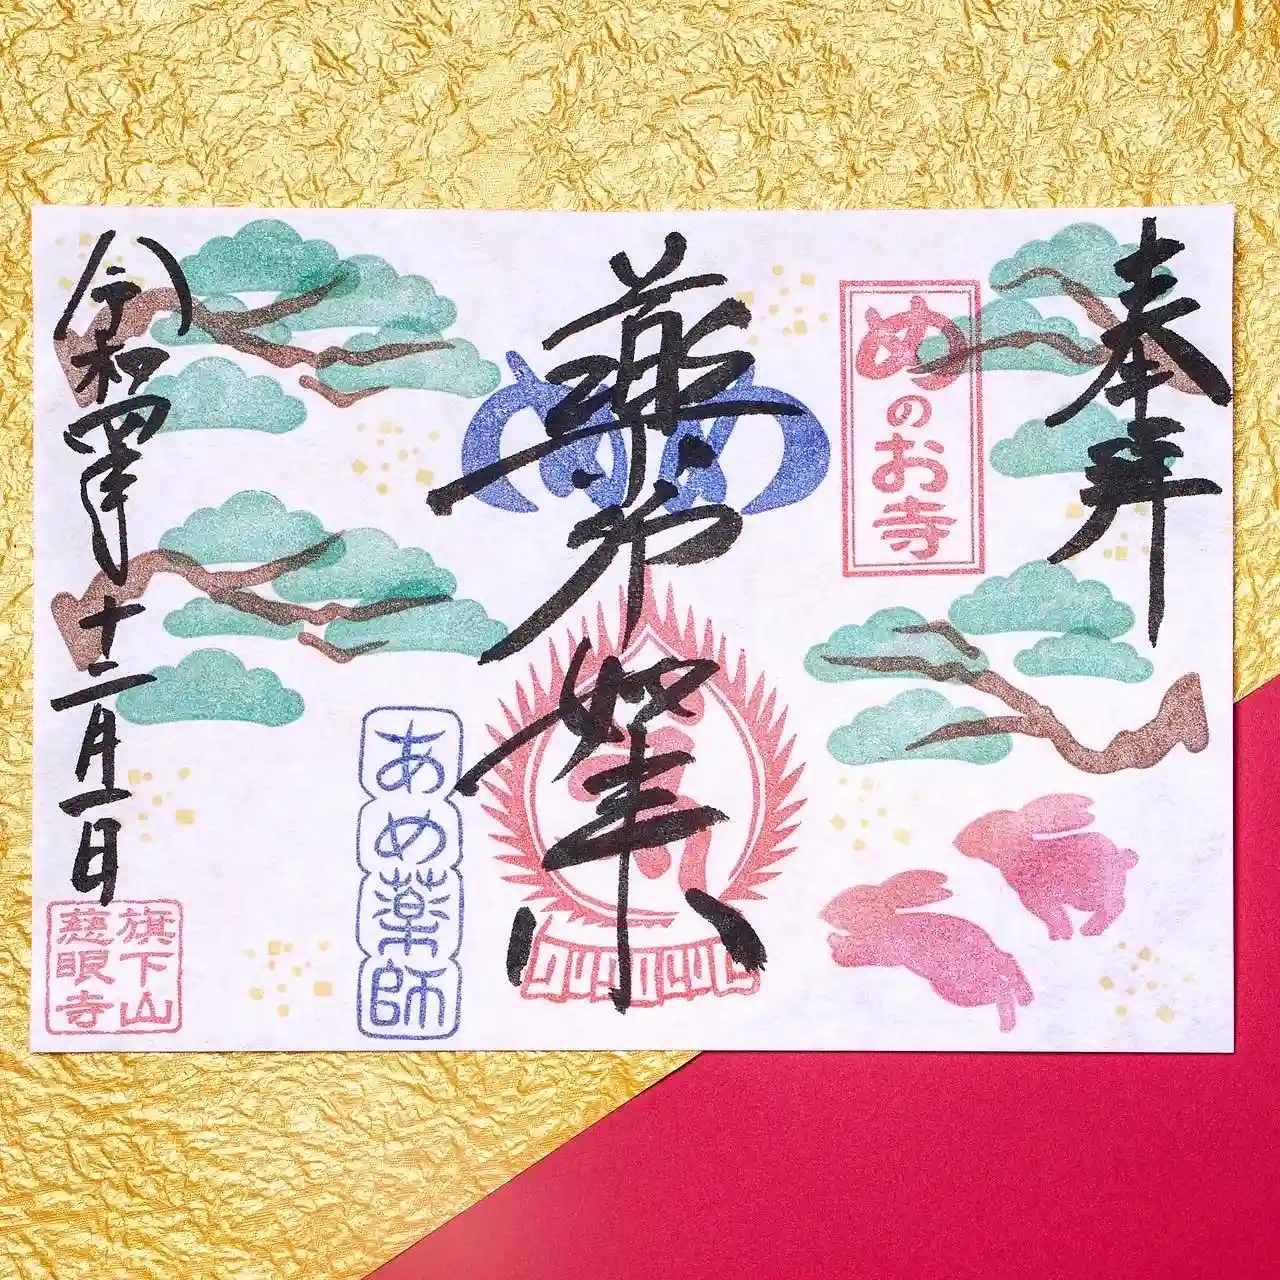 奉拝
めのお寺
薬師如来
あめ薬師
令和四年十二月一日
旗下山
慈眼寺